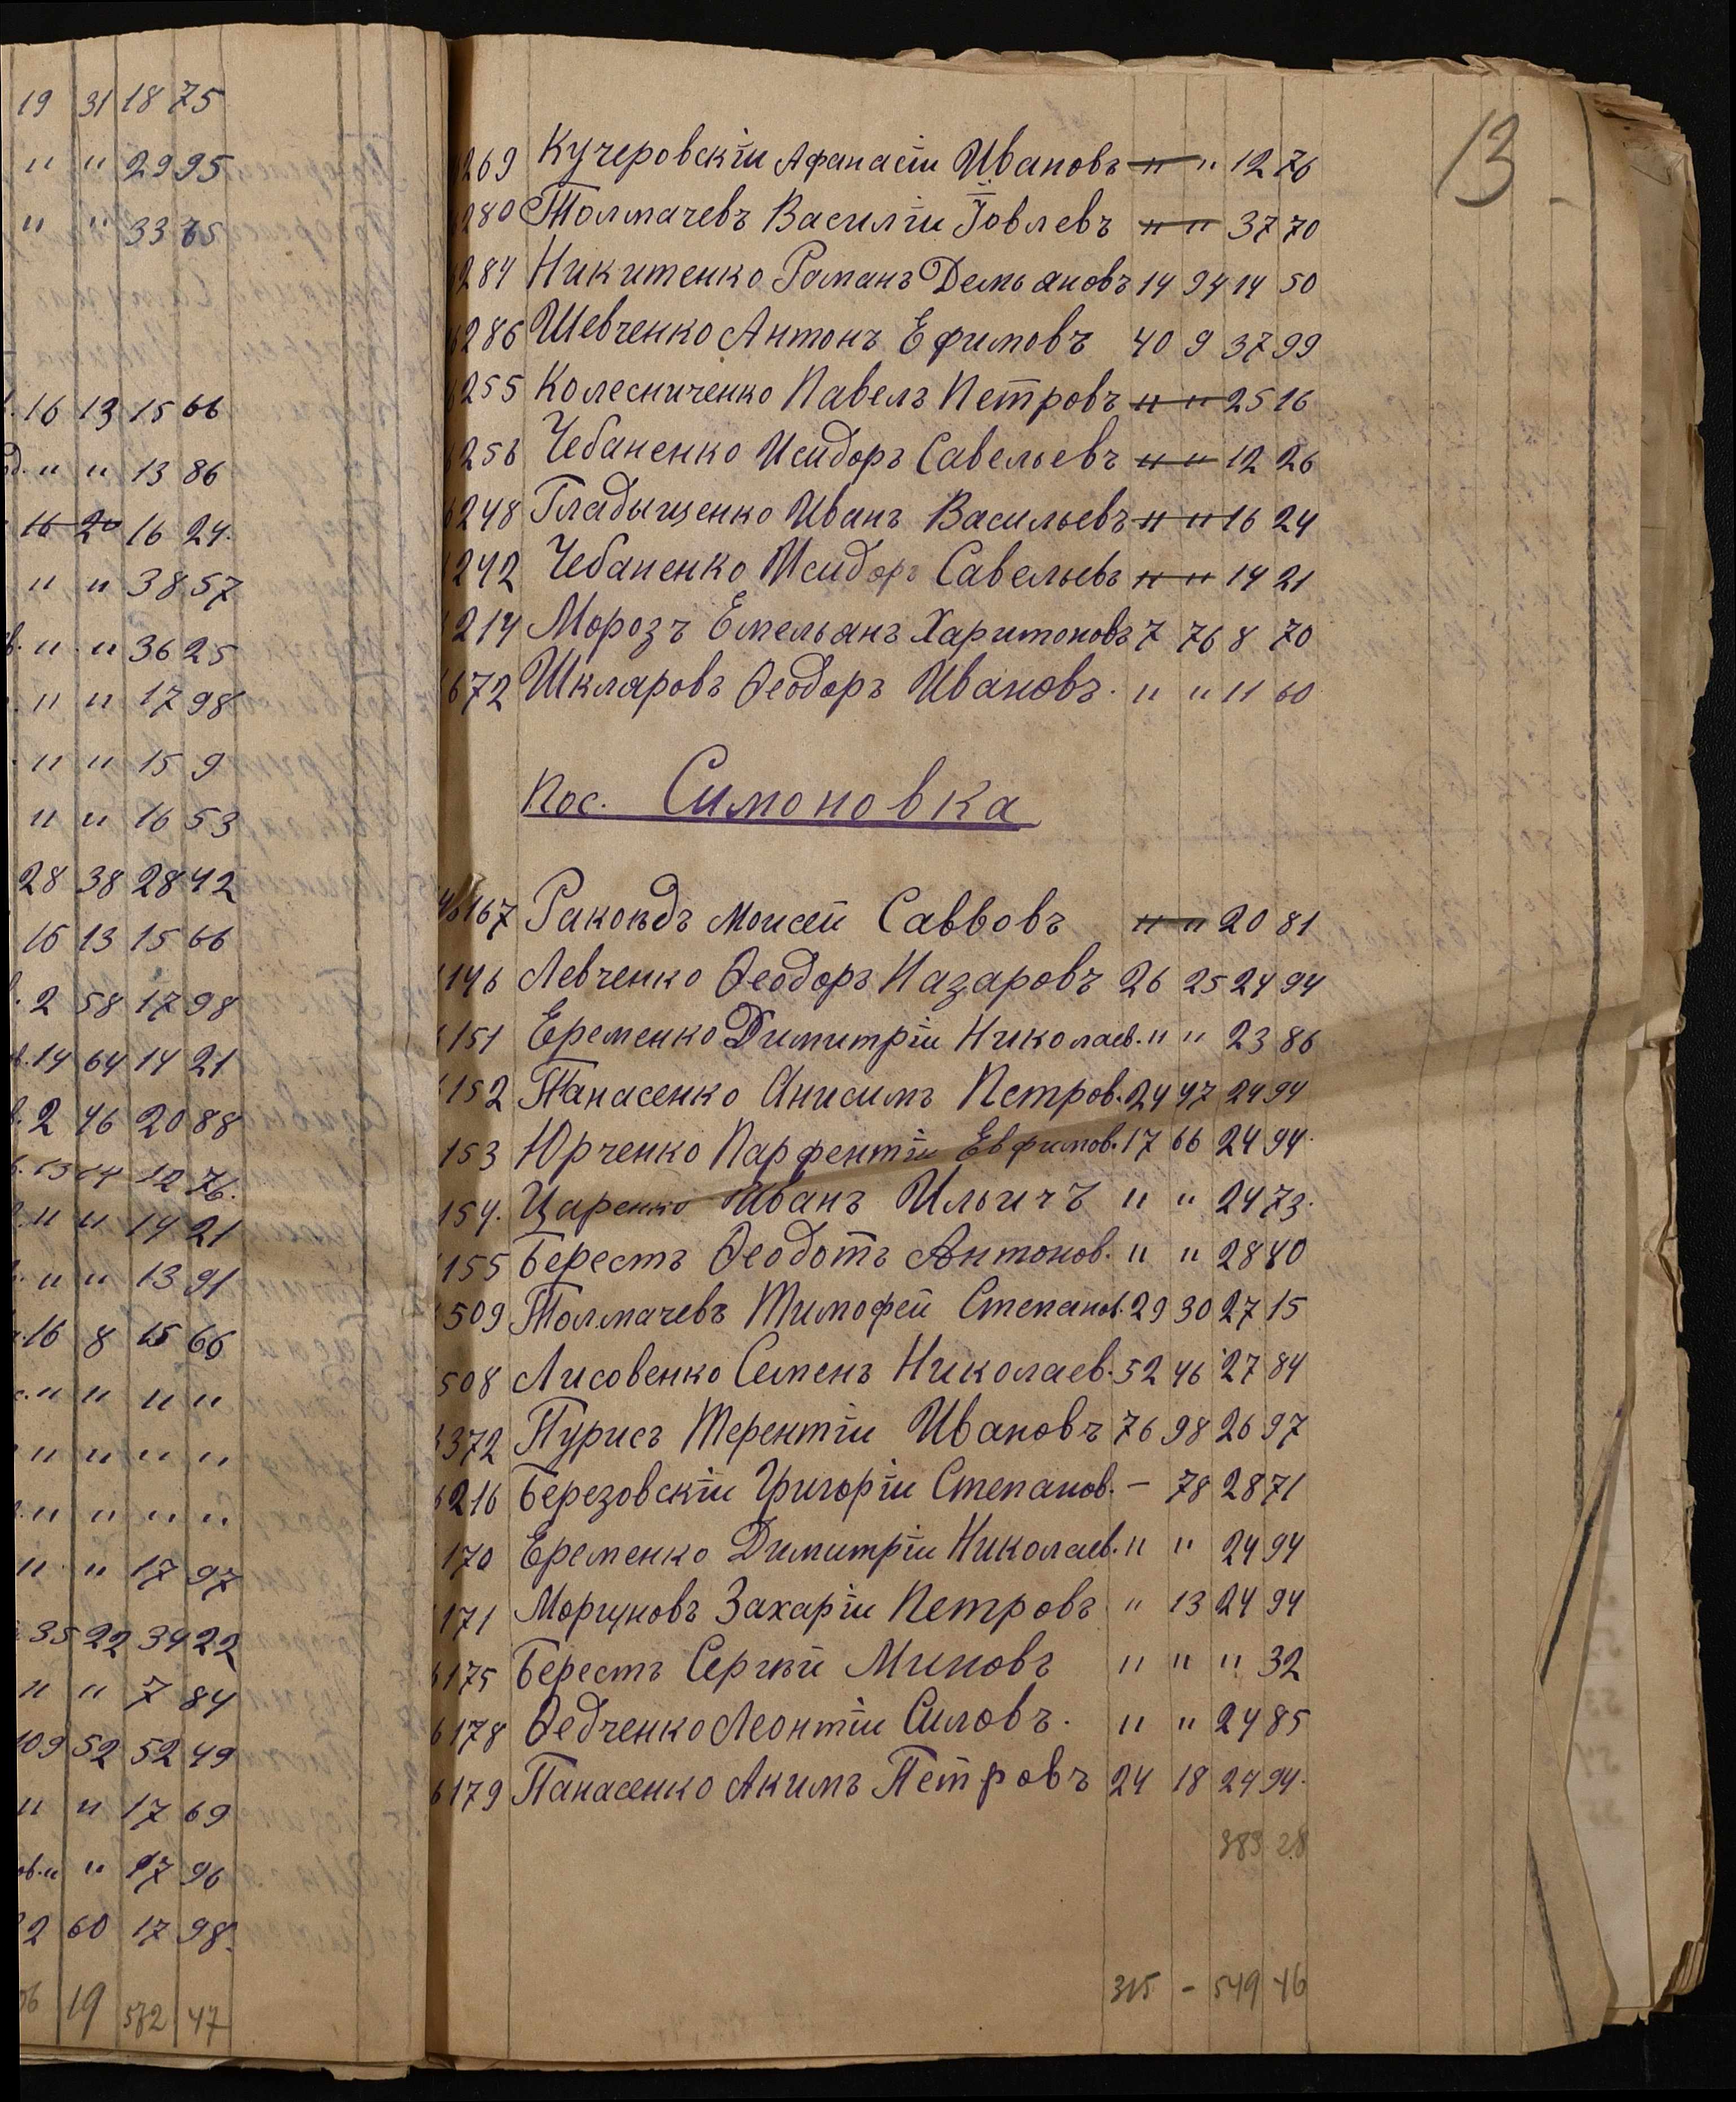 19 31 18 75
" " 29 95
" " 33 65
16 13 15 66
" " 13 86
16 20 16 24.
" " 38 57
" " 36 25
" " 17 98
" " 15 9
" " 16 53
28 38 28 42
16 13 15 66
2 58 17 98
14 64 14 21
2 46 20 88
12 76.
" " 14 21
" " 13 91
16 8 15 66
" " " "
" " " "
" " " "
" " 17 97
35 22 34 22
" " 7 84
109 52 52 49
" " 17 69
" " 17 96
2 60 17 98.
19 572 47
13
269 Кучеровскій Афанасій Ивановъ " " 12 76
280 Толмачевъ Василій Іовлевъ " " 37 70
284 Никитенко Романъ Демьяновъ 14 94 14 50
286 Шевченко Антонъ Ефимовъ 40 9 37 99
255 Колесниченко Павелъ Петровъ " " 25 16
256 Чебаненко Исидоръ Савельевъ " " 12 26
248 Гладыщенко Иванъ Васильевъ " " 16 24
242 Чебаненко Исидоръ Савельевъ " " 14 21
214 Морозъ Емельянъ Харитоновъ 7 76 8 70
672 Шкляровъ Ѳеодоръ Ивановъ. " " 11 60
Пос. Симоновка
167 Ракоѣдъ Моисей Саввовъ " " 20 81
146 Левченко Ѳеодоръ Назаровъ 26 25 24 94
151 Еременко Димитрій Николаев. " " 23 86
152 Панасенко Анисимъ Петров. 24 97 24 94
153 Юрченко Парфентій Евфимов. 17 66 24 94.
154. Царенко Иванъ Ильичъ " " 24 73.
155 Берестъ Ѳеодотъ Антонов. " " 28 40
509 Толмачевъ Тимофей Степанов. 29 30 27 15
508 Лисовенко Семенъ Николаев. 52 46 27 84
372 Пурисъ Терентій Ивановъ 76 98 26 97
216 Березовскій Григорій Степанов. - 78 28 71
170 Еременко Димитрій Николаев. " " 24 94
171 Моргуновъ Захарій Петровъ " 13 24 94
175 Берестъ Сергѣй Миновъ " " " 32
6178 Ѳедченко Леонтій Силовъ. " " 24 85
6179 Панасенко Акимъ Петровъ 24 18 24 94.
383 28
315 - 549 46